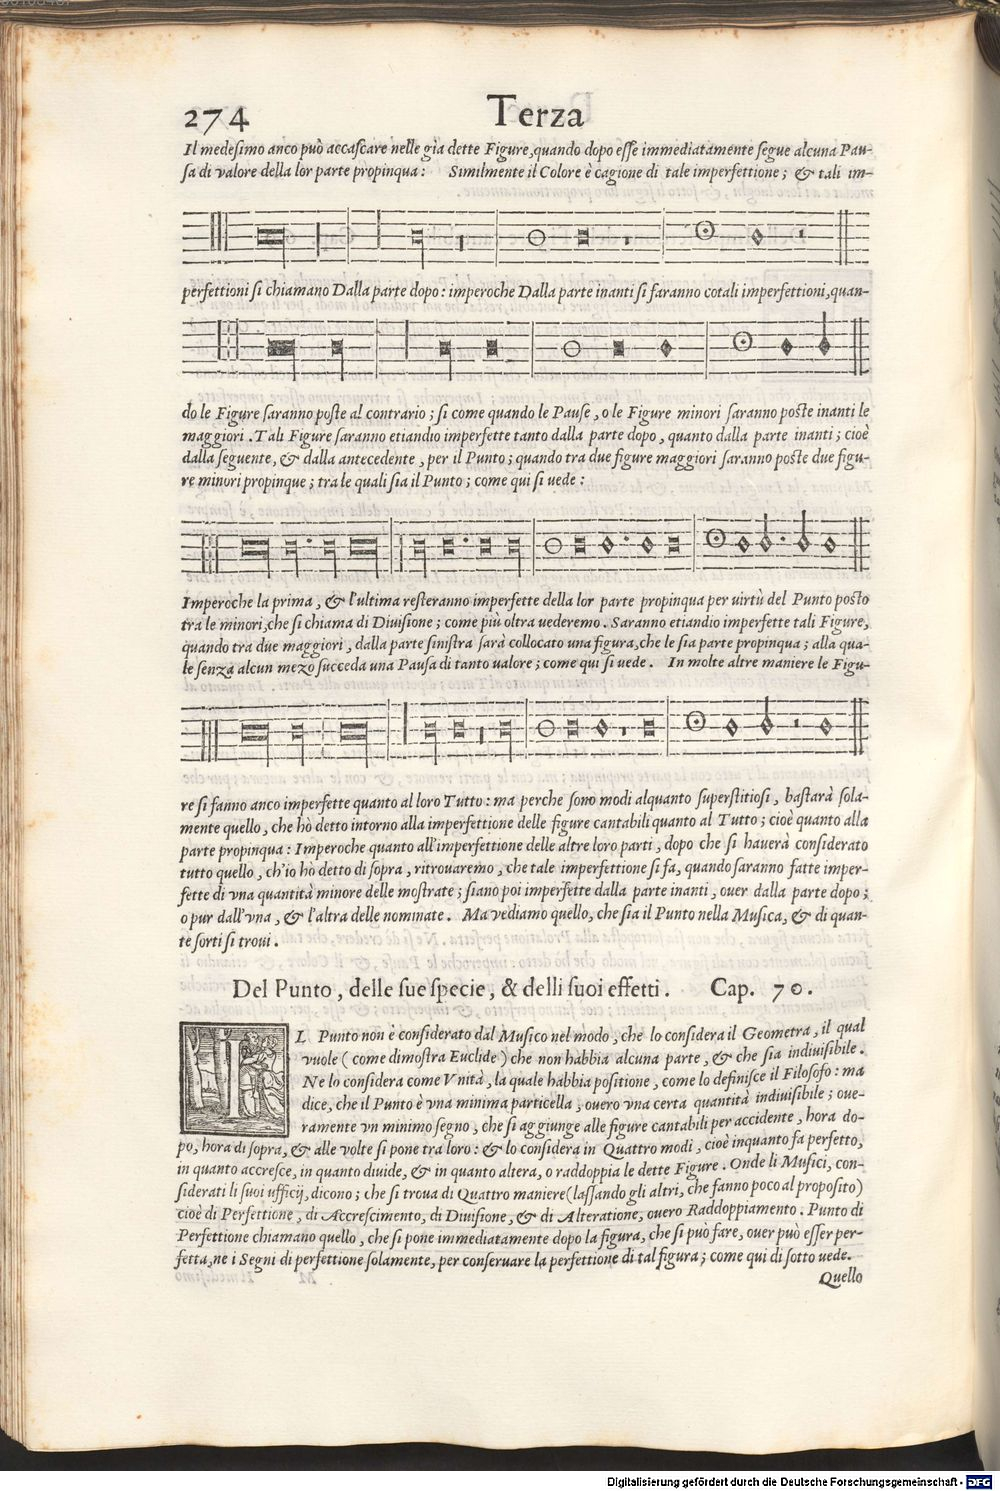 274 Terza
Il medesimo anco può accascare nelle già dette Figure, quando dopo esse immediatamente segue alcuna Pau-
sa di valore della lor parte propinqua: Similmente il Colore è cagione di tale imperfettione; & tali im-
perfettioni si chiamano Dalla parte dopo: imperoche Dalla parte inanti si faranno cotali imperfettioni, quan-
do le Figure saranno poste al contrario; si come quando le Pause, o le Figure minori saranno poste inanti le
maggiori. Tali Figure saranno etiandio imperfette tanto dalla parte dopo, quanto dalla parte inanti; cioè
dalla seguente, & dalla antecedente, per il Punto; quando tra due figure maggiori saranno poste due figu-
re minori propinque; tra le quali sia il Punto; come qui si uede:
Imperoche la prima, & l'ultima resteranno imperfette della lor parte propinqua per uirtù del Punto posto
tra le minori, che si chiama di Diuisione; come più oltra uederemo. Saranno etiandio imperfette tali Figure,
quando tra due maggiori, dalla parte sinistra sarà collocato una figura, che le sia parte propinqua; alla qua-
le senza alcun mezo succeda una Pausa di tanto ualore; come qui si uede. In molte altre maniere le Figu-
re si fanno anco imperfette quanto al loro Tutto: ma perche sono modi alquanto superstitiosi, bastarà sola-
mente quello, che hò detto intorno alla imperfettione delle figure cantabili quanto al Tutto; cioè quanto alla
parte propinqua: Imperoche quanto all'imperfettione delle altre loro parti, dopo che si hauerà considerato
tutto quello, ch'io hò detto di sopra, ritrouaremo, che tale imperfettione si fa, quando saranno fatte imper-
fette di vna quantità minore delle mostrate; siano poi imperfette dalla parte inanti, ouer dalla parte dopo;
o pur dall'vna, & l'altra delle nominate. Ma vediamo quello, che sia il Punto nella Musica, & di quan-
te sorti si troui.
Del Punto, delle sue specie, & delli suoi effetti. Cap. 70.
IL Punto non è considerato dal Musico nel modo, che lo considera il Geometra, il qual
vuole (come dimostra Euclide) che non habbia alcuna parte, & che sia indiuisibile.
Ne lo considera come Vnità, la quale habbia positione, come lo definisce il Filosofo: ma
dice, che il Punto è vna minima particella, ouero vna certa quantità indiuisibile; oue-
ramente vn minimo segno, che si aggiunge alle figure cantabili per accidente, hora do-
po, hora di sopra, & alle volte si pone tra loro: & lo considera in Quattro modi, cioè inquanto fa perfetto,
in quanto accresce, in quanto diuide, & in quanto altera, o raddoppia le dette Figure. Onde li Musici, con-
siderati li suoi ufficij, dicono; che si troua di Quattro maniere (lassando gli altri, che fanno poco al proposito)
cioè di Perfettione, di Accrescimento, di Diuisione, & di Alteratione, ouero Raddoppiamento. Punto di
Perfettione chiamano quello, che si pone immediatamente dopo la figura, che si può fare, ouer può esser per-
fetta, ne i Segni di perfettione solamente, per conseruare la perfettione di tal figura; come qui di sotto uede.
Quello
Digitalisierung gefördert durch die Deutsche Forschungsgemeinschaft - DFG